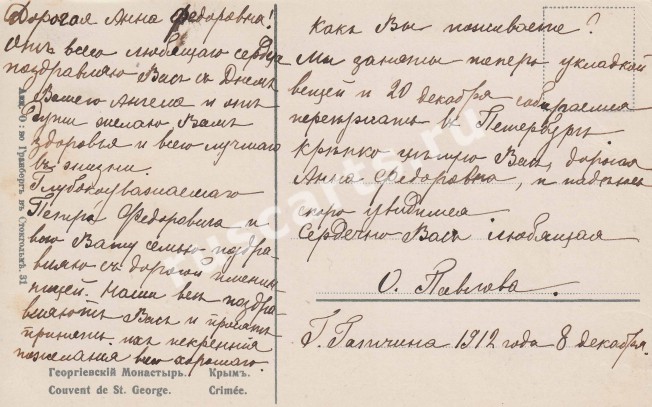 Дорогая Анна Федоровна!
Отъ всего любящаго сердца
поздравляю Васъ съ Днемъ
Вашего Ангела и отъ
души желаю Вамъ
здоровья и всего лучшаго
въ жизни.
Глубокоуважаемаго
Петра Федоровича и
всю Вашу семью поздра-
вляю съ дорогой именин-
ницей. Наши всѣ поздра-
вляютъ Васъ и
принять ихъ искреннія
пожеланія всего хорошаго.
Какъ Вы поживаете?
Мы заняты теперь укладкой
вещей и 20 декабря собираемся
переѣзжать въ Петербургъ
Крѣпко цѣлую Васъ, дорогая
Анна Федоровна, и надѣюсь
скоро увидимся
Сердечно Васъ любящая
О. Павлова.
Г. Гатчина 1912 года 8 декабря.
Акц. О-во Гранбергъ въ Стокгольмѣ. 31
Георгіевскій Монастырь. Крымъ.
Couvent de St. George. Crimée.
ruscarts.ru